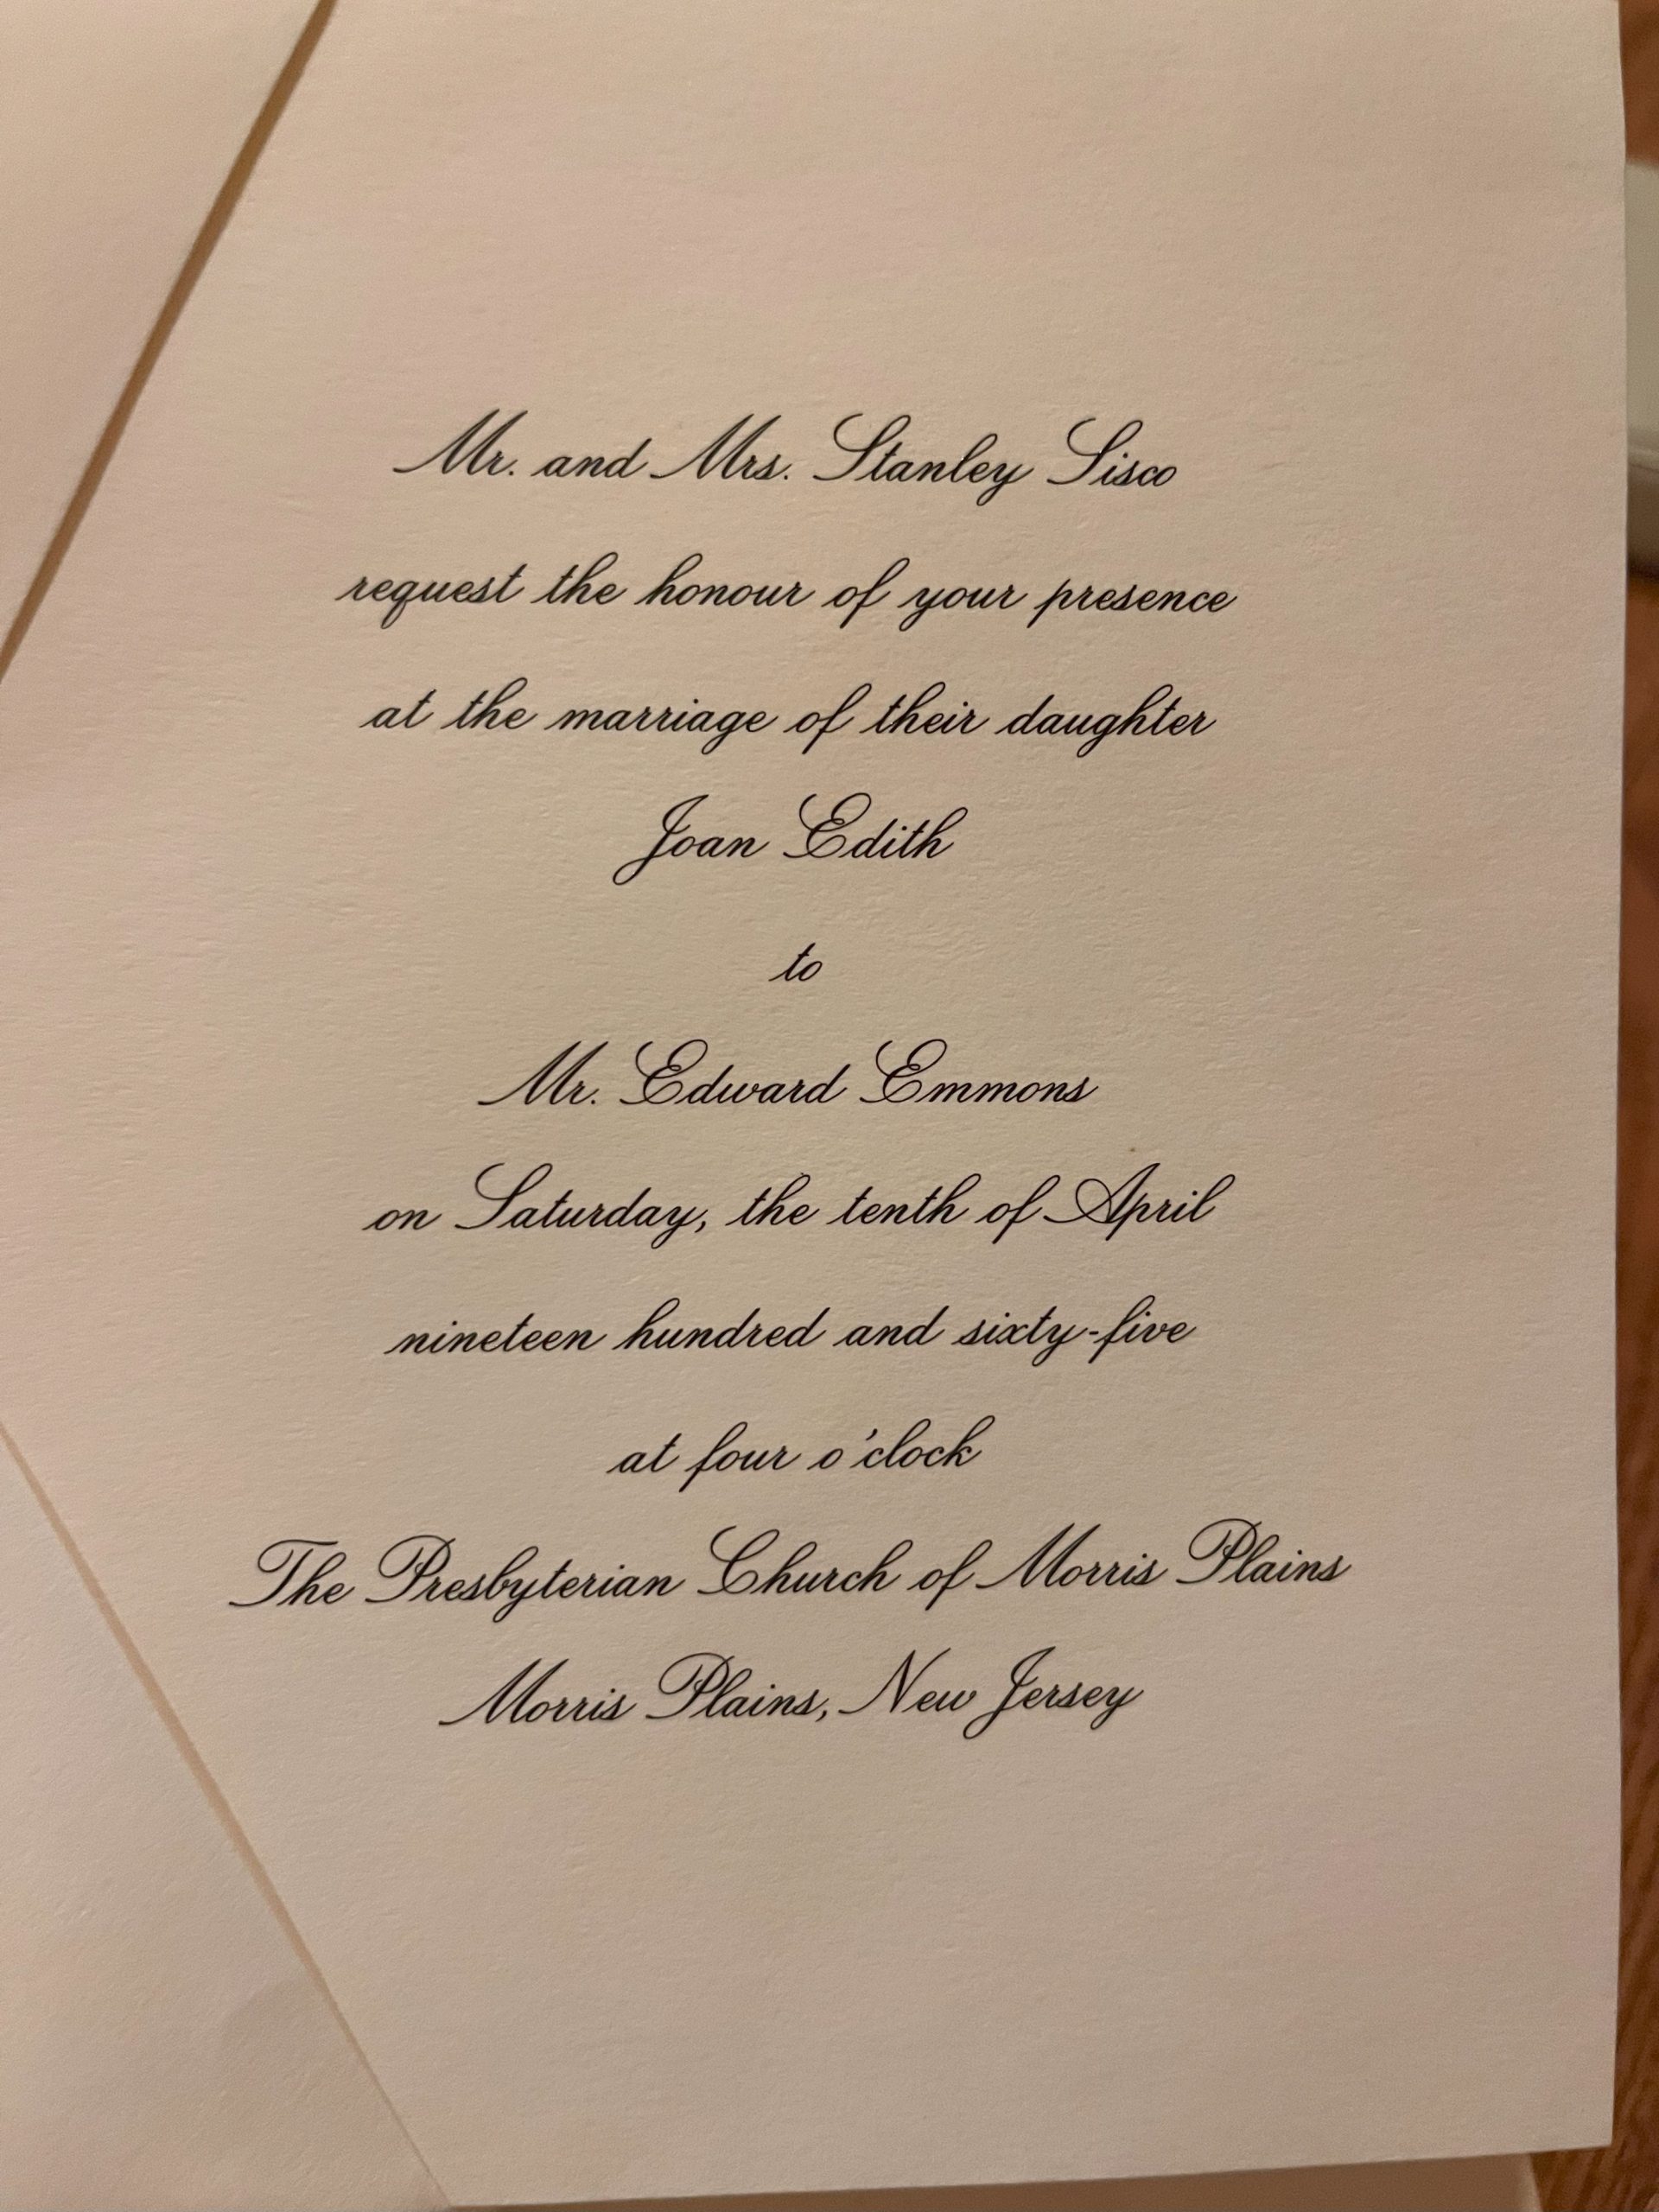 Mr. and Mrs. Stanley Sisco
request the honour of your presence
at the marriage of their daughter
Joan Edith
to
Mr. Edward Emmons
on Saturday, the tenth of April
nineteen hundred and sixty-five
at four o'clock
The Presbyterian Church of Morris Plains
Morris Plains, New Jersey